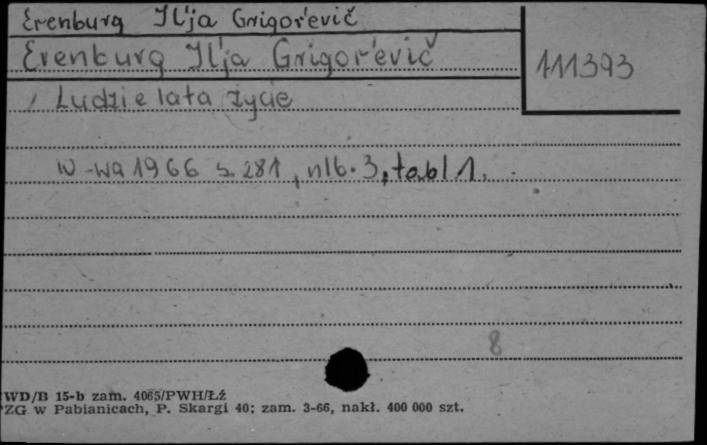 Erenburg Il'ja Grigor'evič
Erenburg Il'ja Grigor'evič
111393
Ludzie lata życie
W-wa 1966 s. 281, nlb. 3, tabl 1.
8
WD/B 15-b zam. 4065/PWH/Łź
ZG w Pabianicach, P. Skargi 40; zam. 3-66, nakł. 400 000 szt.